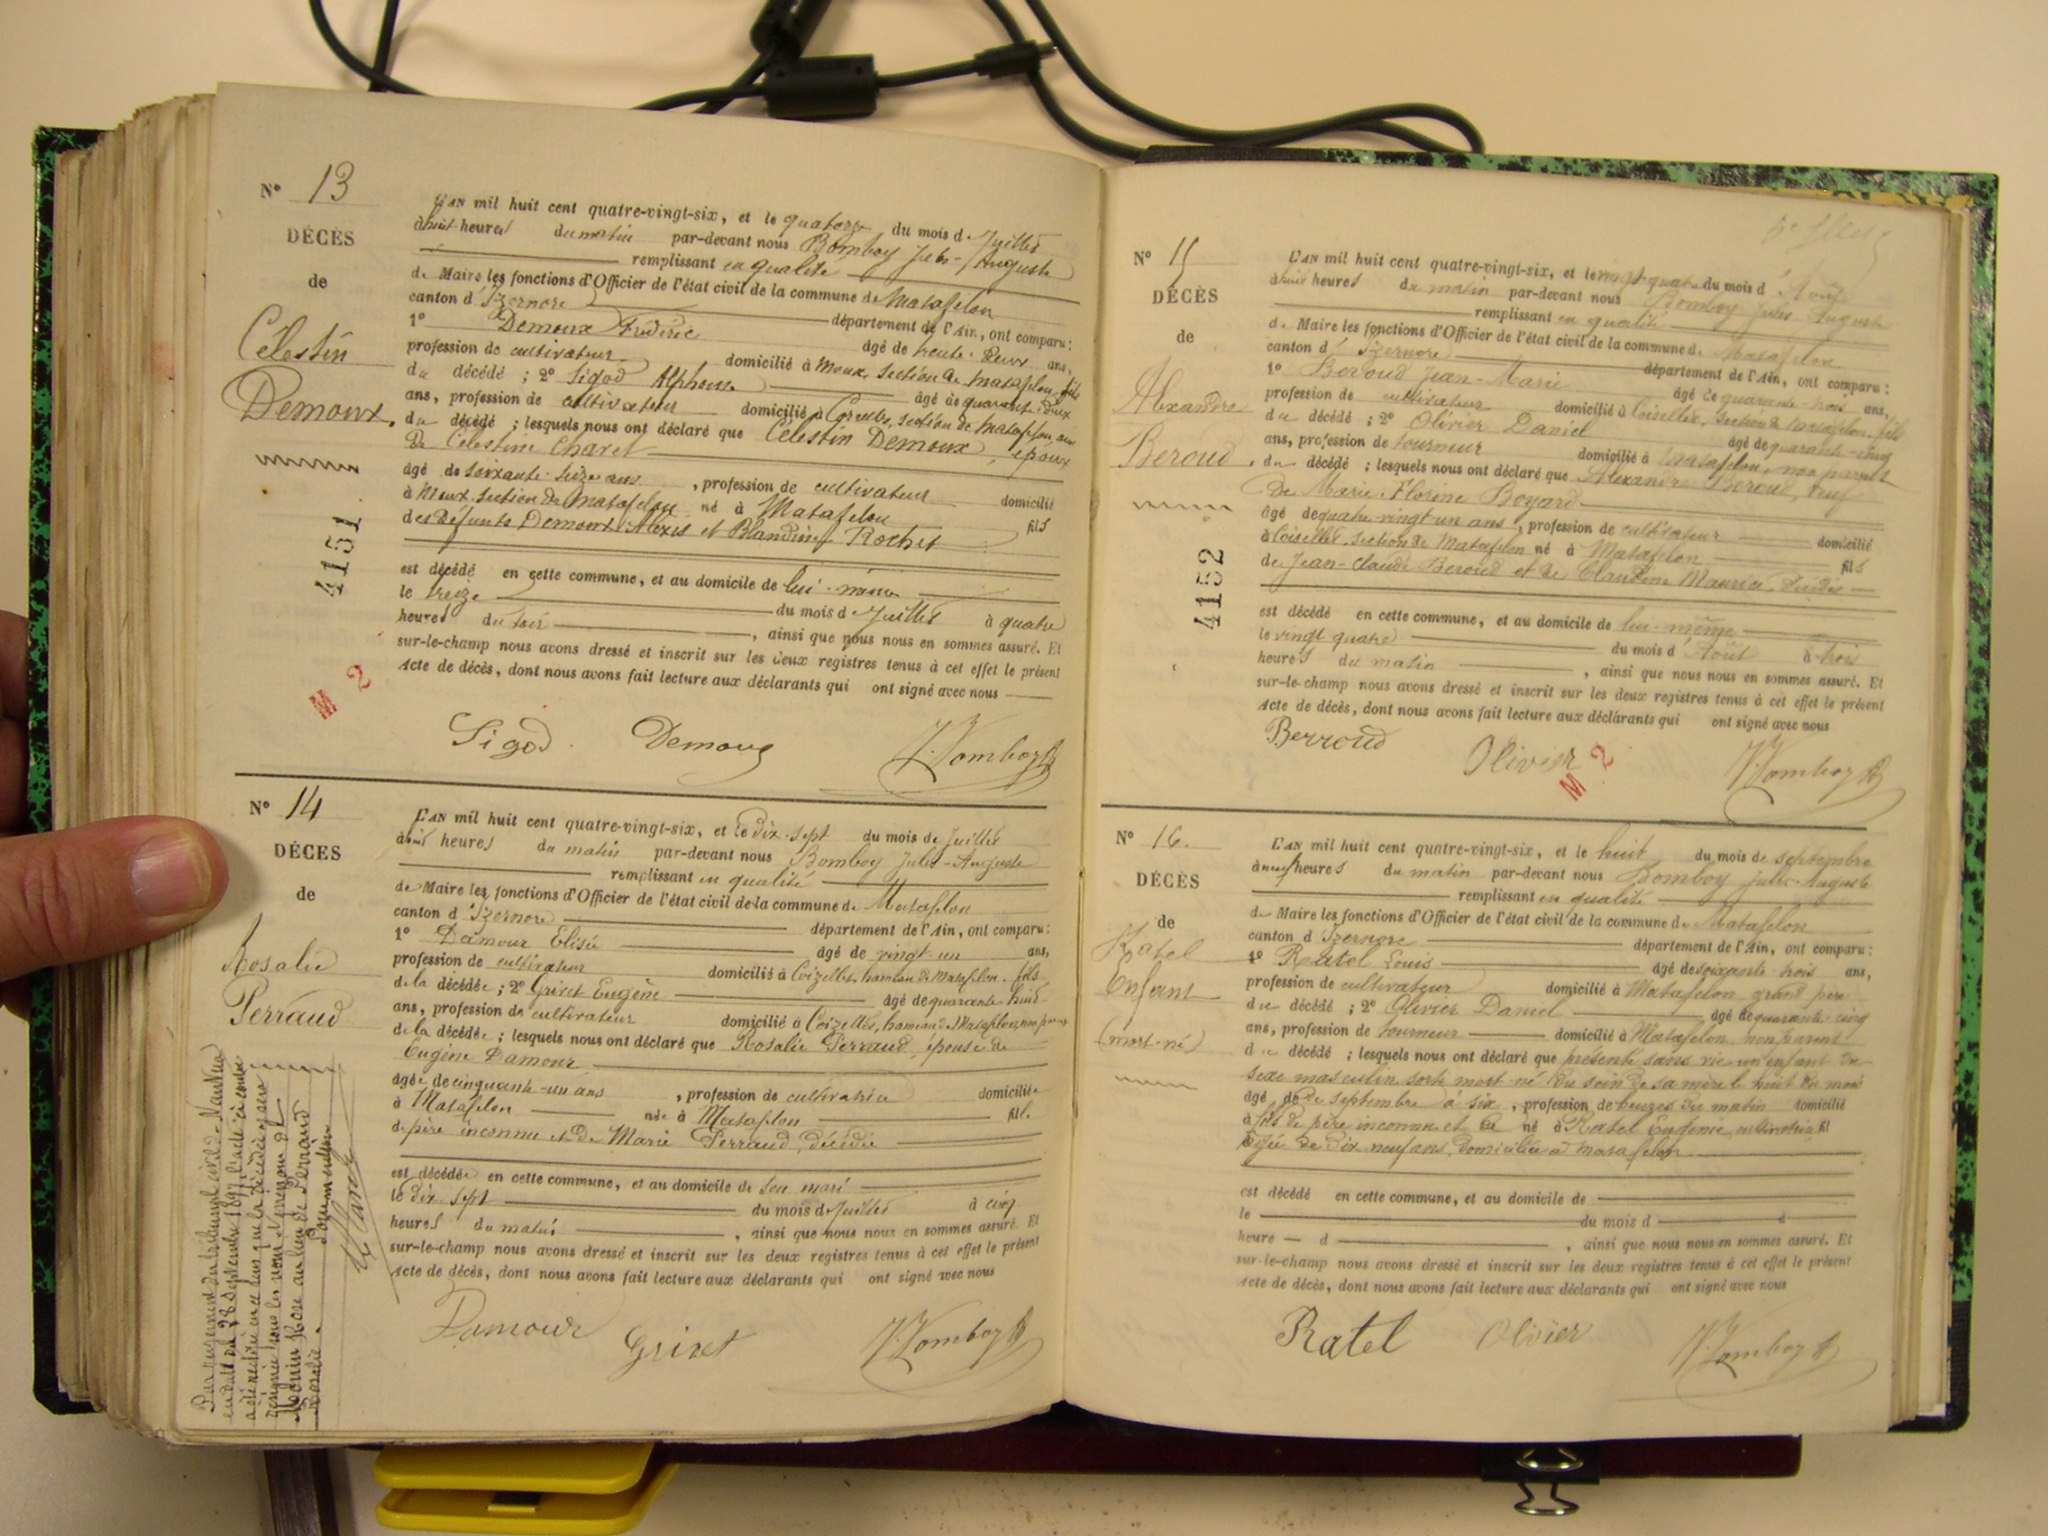 N° 13
DÉCÈS
de
Célestin
Demoux.
4151
M 2
L'AN mil huit cent quatre-vingt-six, et le quatorze du mois de Juillet
à huit heures du matin par-devant nous Bomboy Jules-Auguste
remplissant en qualité
de Maire les fonctions d'Officier de l'état civil de la commune de Matafelon
canton d'Izernore département de l'Ain, ont comparu :
1° Demoux Frédéric âgé de trente-deux ans,
profession de cultivateur domicilié à Moux, section de Matafelon, fils
du décédé ; 2° Sigod Alphonse âgé de quarante-deux
ans, profession de cultivateur domicilié à Corcelles, section de Matafelon,
du décédé ; lesquels nous ont déclaré que Célestin Demoux, époux
de Célestine Charet
âgé de soixante-seize ans, profession de cultivateur domicilié
à Moux, section de Matafelon né à Matafelon fils
des défunts Demoux Alexis et Blandine Rochet
est décédé en cette commune, et au domicile de lui-même
le treize du mois de Juillet à quatre
heures du soir, ainsi que nous nous en sommes assuré. Et
sur-le-champ nous avons dressé et inscrit sur les deux registres tenus à cet effet le présent
acte de décès, dont nous avons fait lecture aux déclarants qui ont signé avec nous
Sigod Demoux J. Bomboy
N° 14
DÉCÈS
de
Rosalie
Perraud
L'AN mil huit cent quatre-vingt-six, et le dix-sept du mois de Juillet
à huit heures du matin par-devant nous Bomboy Jules-Auguste
remplissant en qualité
de Maire les fonctions d'Officier de l'état civil de la commune de Matafelon
canton d'Izernore département de l'Ain, ont comparu :
1° Damour Elisée âgé de vingt-un ans,
profession de cultivateur domicilié à Coizelles, hameau de Matafelon, fils
de la décédée ; 2° Grivet Eugène âgé de quarante-huit
ans, profession de cultivateur domicilié à Coizelles, hameau de Matafelon, non parent
de la décédée ; lesquels nous ont déclaré que Rosalie Perraud, épouse de
Eugène Damour
âgée de cinquante-un ans, profession de cultivatrice domiciliée
à Matafelon née à Matafelon fille
de père inconnu et de Marie Perraud, décédée
est décédée en cette commune, et au domicile de son mari
le dix-sept du mois de Juillet à cinq
heures du matin, ainsi que nous nous en sommes assuré. Et
sur-le-champ nous avons dressé et inscrit sur les deux registres tenus à cet effet le présent
acte de décès, dont nous avons fait lecture aux déclarants qui ont signé avec nous
Damour Grivet J. Bomboy
Par jugement du tribunal civil de Nantua
en date du 28 septembre 1897, l'acte ci-contre
a été rectifié en ce sens que la décédée y sera
désignée sous les nom et prénom de
Monin Rose au lieu de Perraud
Rosalie. Pour mention
N° 15
DÉCÈS
de
Alexandre
Beroud.
4152
M 2
L'AN mil huit cent quatre-vingt-six, et le vingt-quatre du mois d'Août
à huit heures du matin par-devant nous Bomboy Jules-Auguste
remplissant en qualité
de Maire les fonctions d'Officier de l'état civil de la commune de Matafelon
canton d'Izernore département de l'Ain, ont comparu :
1° Beroud Jean-Marie âgé de quarante-trois ans,
profession de cultivateur domicilié à Coiselles, section de Matafelon, fils
du décédé ; 2° Olivier Daniel âgé de quarante-cinq
ans, profession de tourneur domicilié à Matafelon, non parent
du décédé ; lesquels nous ont déclaré que Alexandre Beroud, veuf
de Marie-Florine Boyard
âgé de quatre-vingt-un ans, profession de cultivateur domicilié
à Coiselles, section de Matafelon né à Matafelon fils
de Jean-Claude Beroud et de Claudine Maurice, décédés
est décédé en cette commune, et au domicile de lui-même
le vingt quatre du mois d'Août à trois
heures du matin, ainsi que nous nous en sommes assuré. Et
sur-le-champ nous avons dressé et inscrit sur les deux registres tenus à cet effet le présent
acte de décès, dont nous avons fait lecture aux déclarants qui ont signé avec nous
Berroud Olivier J. Bomboy
N° 16.
DÉCÈS
de
Ratel
Enfant
(mort-né)
L'AN mil huit cent quatre-vingt-six, et le huit du mois de septembre
à neuf heures du matin par-devant nous Bomboy Jules-Auguste
remplissant en qualité
de Maire les fonctions d'Officier de l'état civil de la commune de Matafelon
canton d'Izernore département de l'Ain, ont comparu :
1° Ratel Louis âgé de soixante-trois ans,
profession de cultivateur domicilié à Matafelon grand père
du décédé ; 2° Olivier Daniel âgé de quarante-cinq
ans, profession de tourneur domicilié à Matafelon non parent
du décédé ; lesquels nous ont déclaré que présente sans vie un enfant du
sexe masculin sorti mort-né du sein de sa mère le huit du mois
âgé de de septembre à six, profession de heures du matin domicilié
à fils de père inconnu et de né à Ratel Eugénie, cultivatrice fil
âgée de dix-neuf ans, domiciliée à Matafelon
est décédé en cette commune, et au domicile de
le du mois d à
heure d, ainsi que nous nous en sommes assuré. Et
sur-le-champ nous avons dressé et inscrit sur les deux registres tenus à cet effet le présent
acte de décès, dont nous avons fait lecture aux déclarants qui ont signé avec nous
Ratel Olivier J. Bomboy